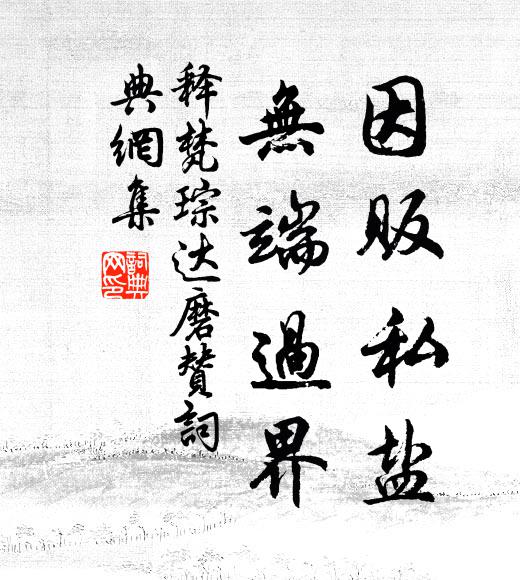 因販私盐
無端過界
释梵琮达磨贊詞
典網集
詞典網印